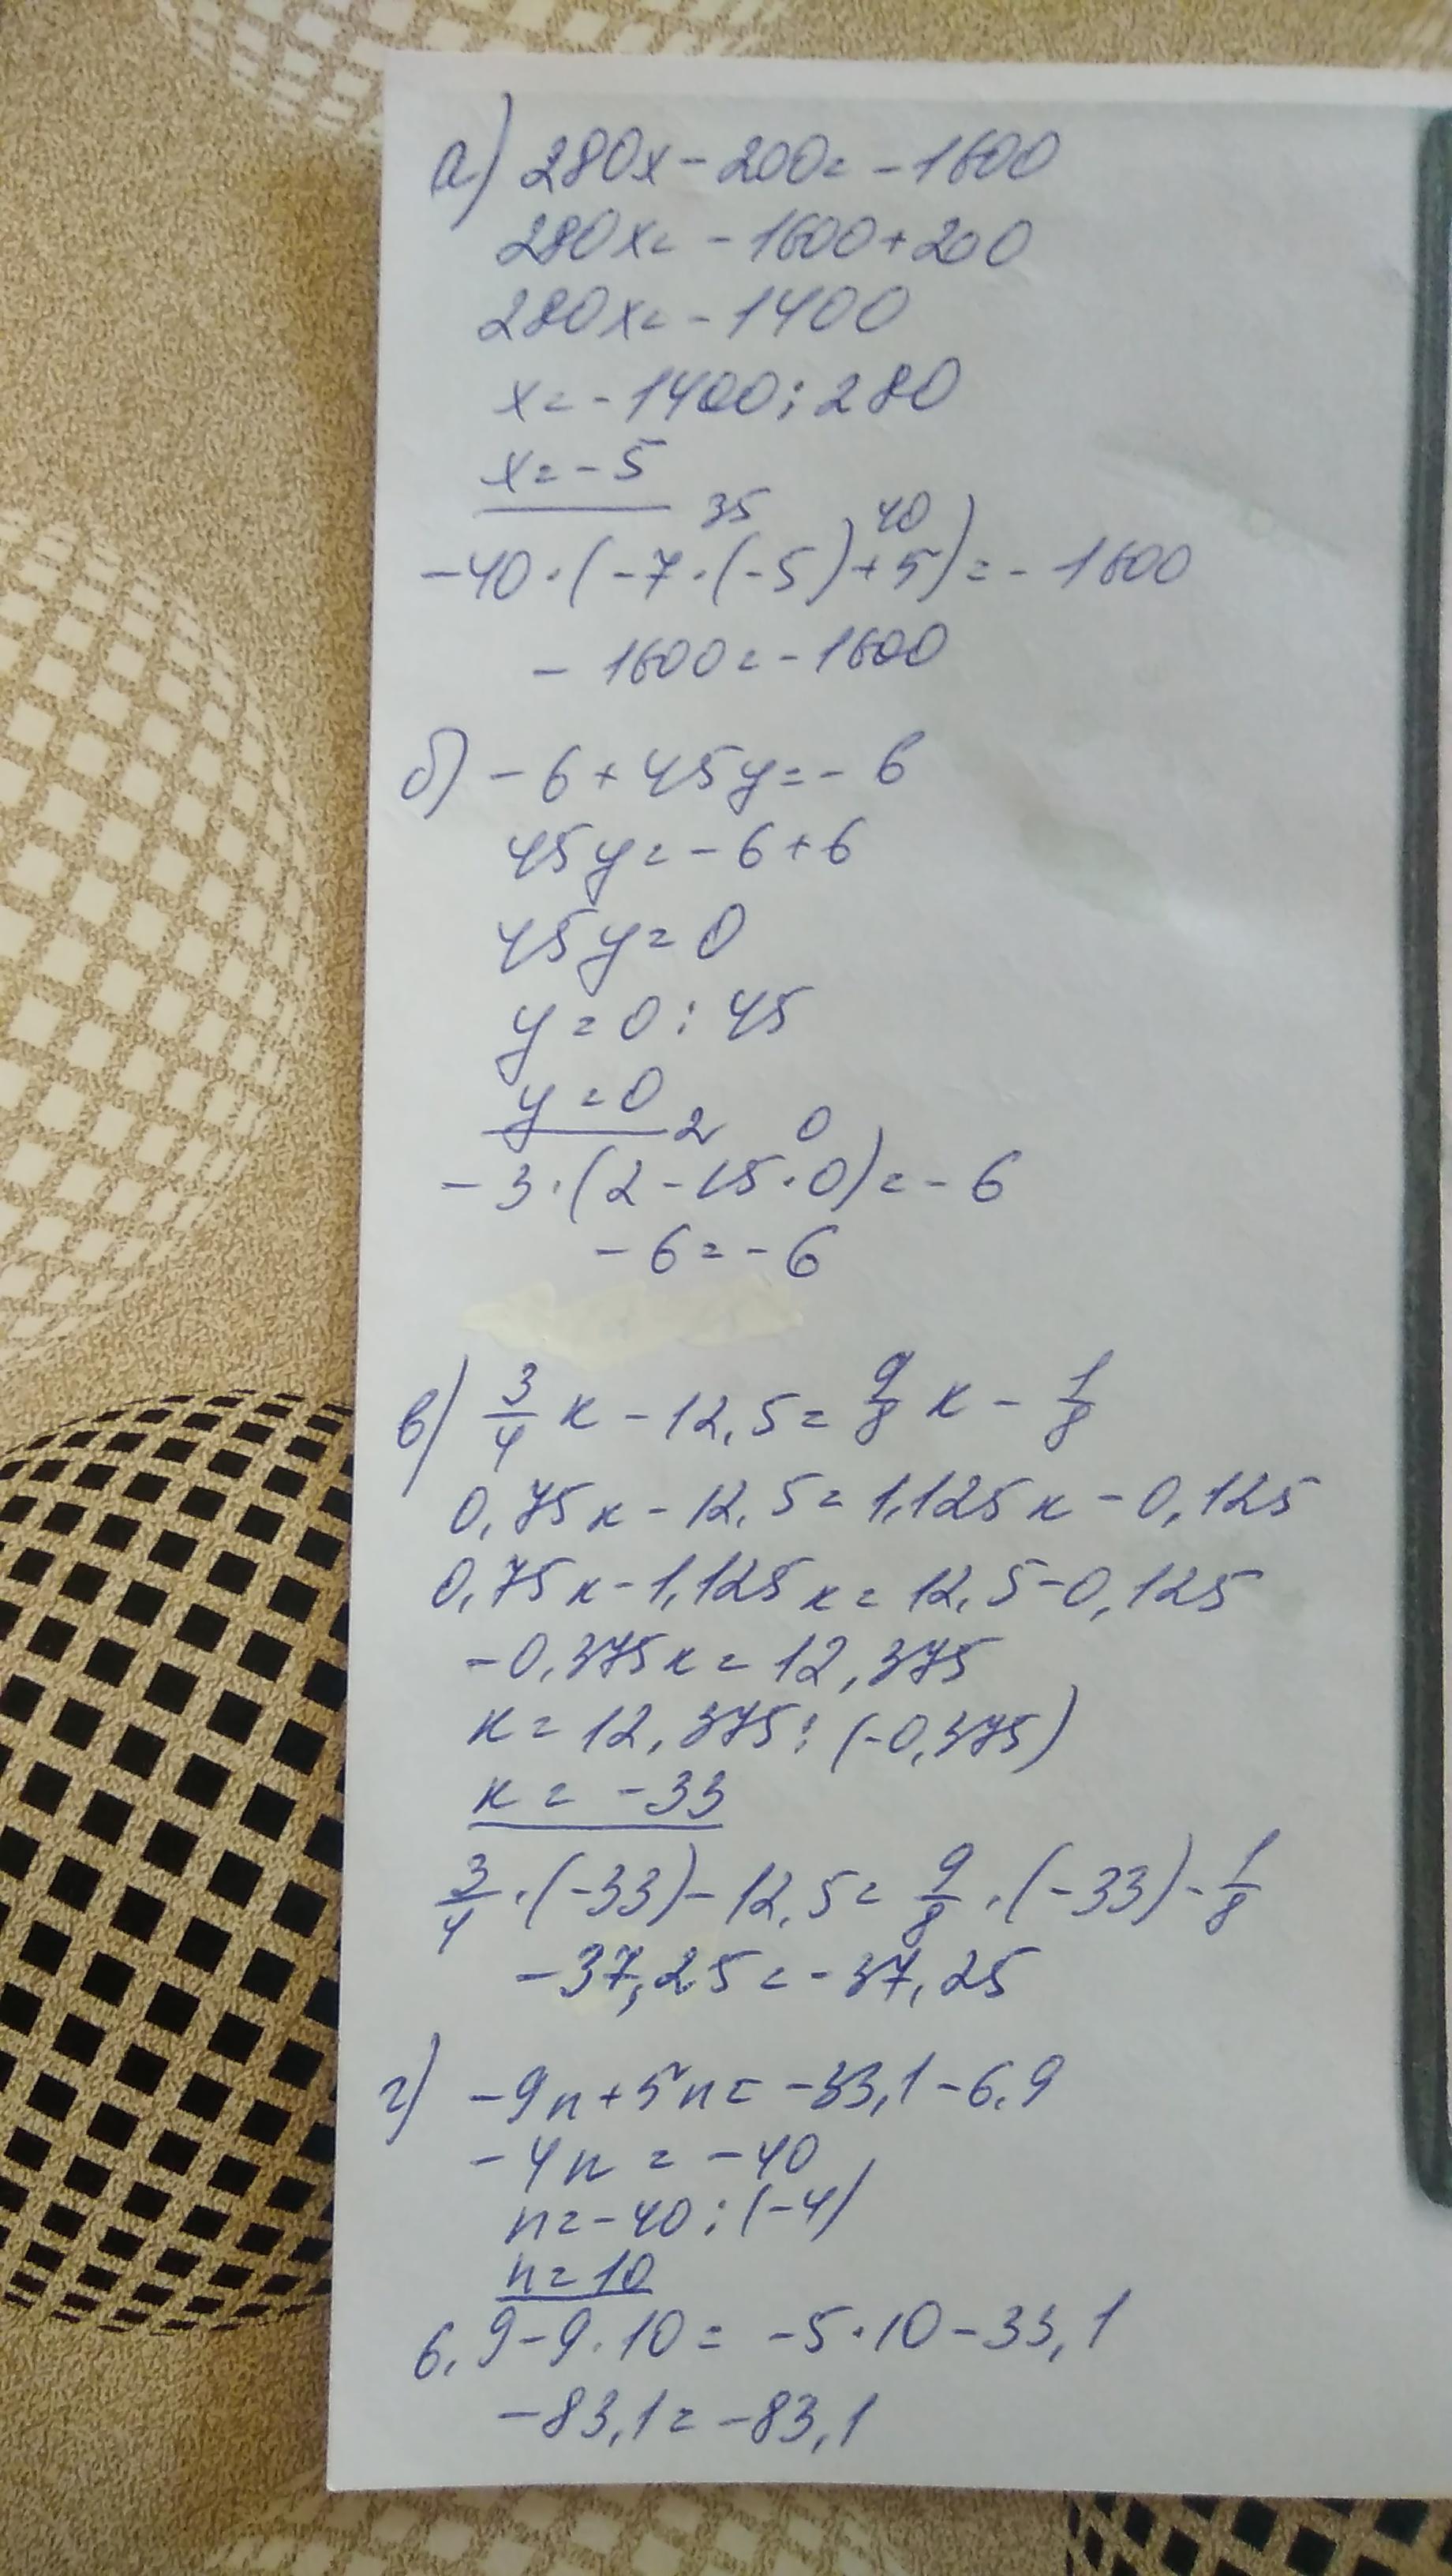 а) 280x - 200 = - 1600
280x = - 1600 + 200
280x = - 1400
x = - 1400 : 280
x = - 5
35 40
- 40 · (- 7 · (- 5) + 5) = - 1600
- 1600 = - 1600
б) - 6 + 45y = - 6
45y = - 6 + 6
45y = 0
y = 0 : 45
y = 0
2 0
- 3 · (2 - 15 · 0) = - 6
- 6 = - 6
в) 3/4 к - 12,5 = 9/8 к - 1/8
0,75к - 12,5 = 1,125к - 0,125
0,75к - 1,125к = 12,5 - 0,125
- 0,375к = 12,375
к = 12,375 : (- 0,375)
к = - 33
3/4 · (- 33) - 12,5 = 9/8 · (- 33) - 1/8
- 37,25 = - 37,25
г) - 9n + 5n = - 33,1 - 6,9
- 4n = - 40
n = - 40 : (- 4)
n = 10
6,9 - 9 · 10 = - 5 · 10 - 33,1
- 83,1 = - 83,1